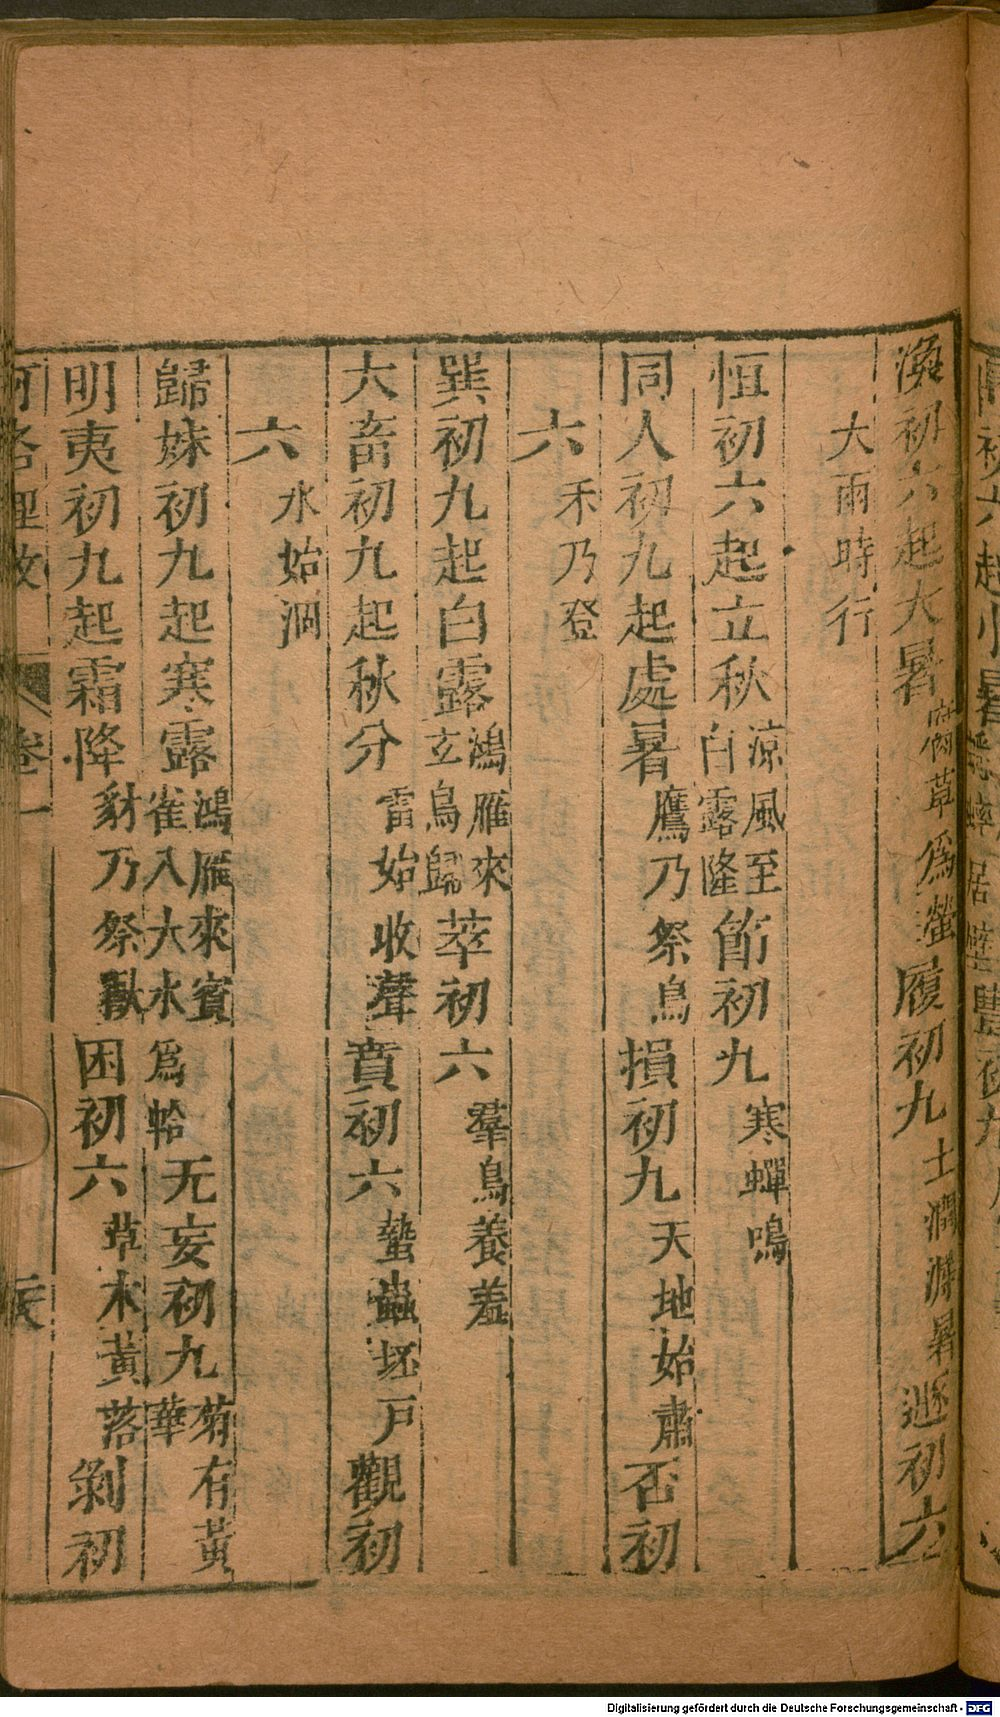 渙初六起大暑腐草為螢履初九土潤溽暑遯初六
大雨時行
恒初六起立秋涼風至白露降節初九寒蟬鳴
同人初九起處暑鷹乃祭鳥損初九天地始肅否初
六禾乃登
巽初九起白露鴻雁來玄鳥歸萃初六羣鳥養羞
大畜初九起秋分雷始收聲賁初六蟄蟲坯戶觀初
六水始涸
歸妹初九起寒露鴻雁來賓雀入大水為蛤无妄初九菊有黃華
明夷初九起霜降豺乃祭獸困初六草木黃落剝初
河洛理數 卷一
Digitalisierung gefördert durch die Deutsche Forschungsgemeinschaft - DFG